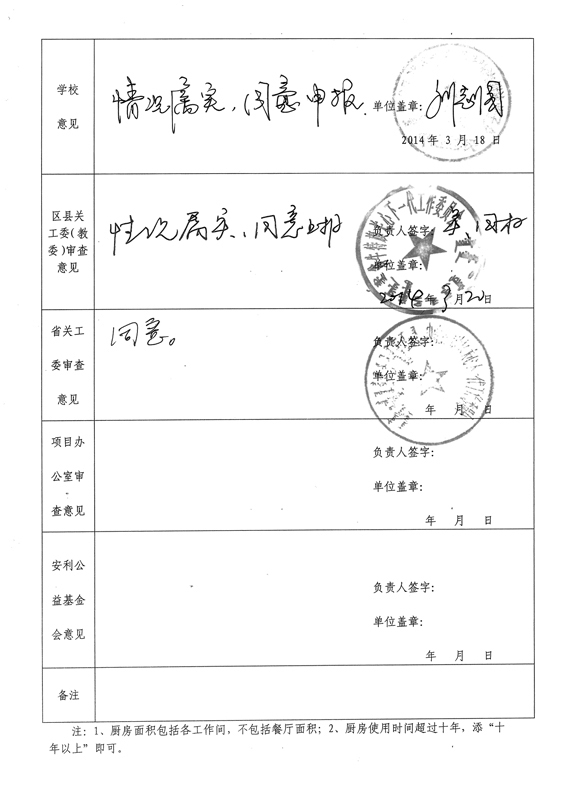 学校
意见
情况属实，同意申报.
单位盖章：
2014年 3 月 18 日
区县关
工委（教
委）审查
意见
情况属实，同意上报
负责人签字：
单位盖章：
2014年3月20日
省关工
委审查
意见
同意。
负责人签字：
单位盖章：
年 月 日
项目办
公室审
查意见
负责人签字：
单位盖章：
年 月 日
安利公
益基金
会意见
负责人签字：
单位盖章：
年 月 日
备注
注：1、厨房面积包括各工作间，不包括餐厅面积；2、厨房使用时间超过十年，添“十
年以上”即可。